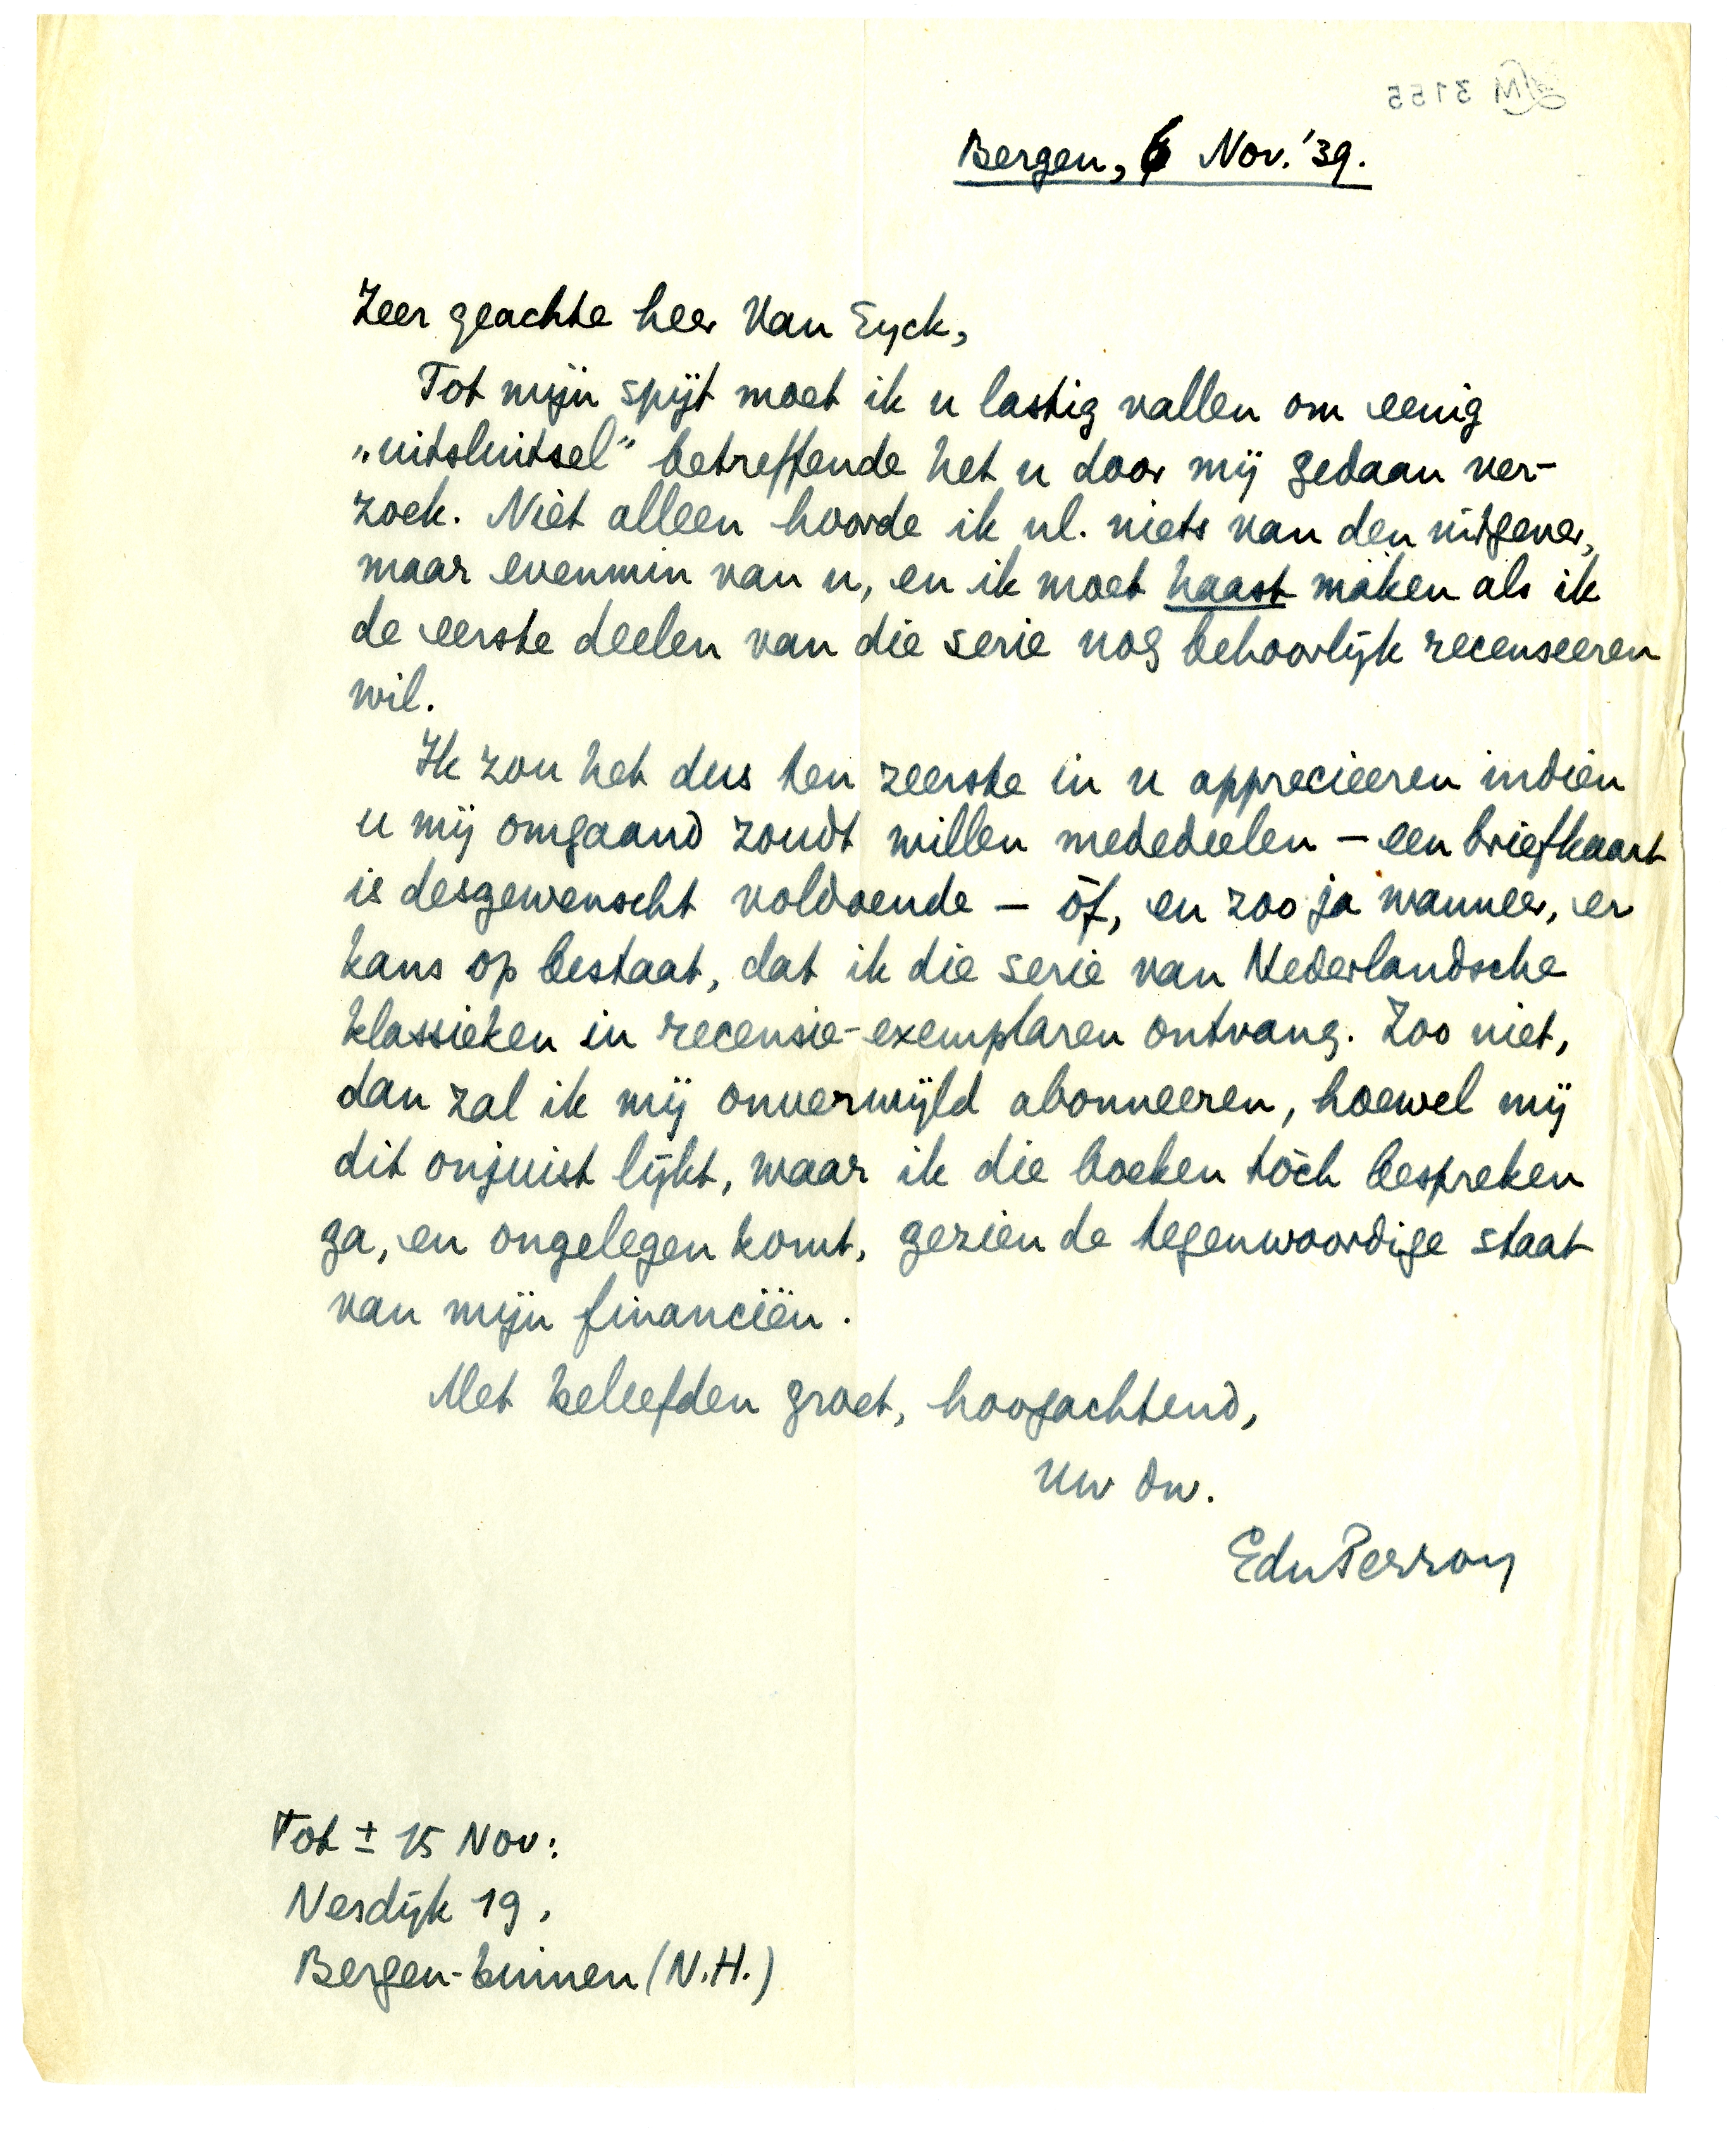 Bergen, 6 Nov. '39.
Zeer geachte heer Van Eyck,
Tot mijn spijt moet ik u lastig vallen om eenig
„uitsluitsel" betreffende het u door mij gedaan ver-
zoek. Niét alleen hoorde ik nl. niets van den uitgever,
maar evenmin van u, en ik moet haast maken als ik
de eerste deelen van die serie nog behoorlijk recenseeren
wil.
Ik zou het dus ten zeerste in u apprecieeren indien
u mij omgaand zoudt willen mededeelen – een briefkaart
is desgewenscht voldoende – òf, en zoo ja wanneer, er
kans op bestaat, dat ik die serie van Nederlandsche
klassieken in recensie-exemplaren ontvang. Zoo niet,
dan zal ik mij onverwijld abonneeren, hoewel mij
dit onjuist lijkt, waar ik die boeken tòch bespreken
ga, en ongelegen komt, gezien de tegenwoordige staat
van mijn financiën.
Met beleefden groet, hoogachtend,
Uw dw.
EduPerron
Tot ± 15 Nov:
Nesdijk 19,
Bergen-binnen (N.H.)